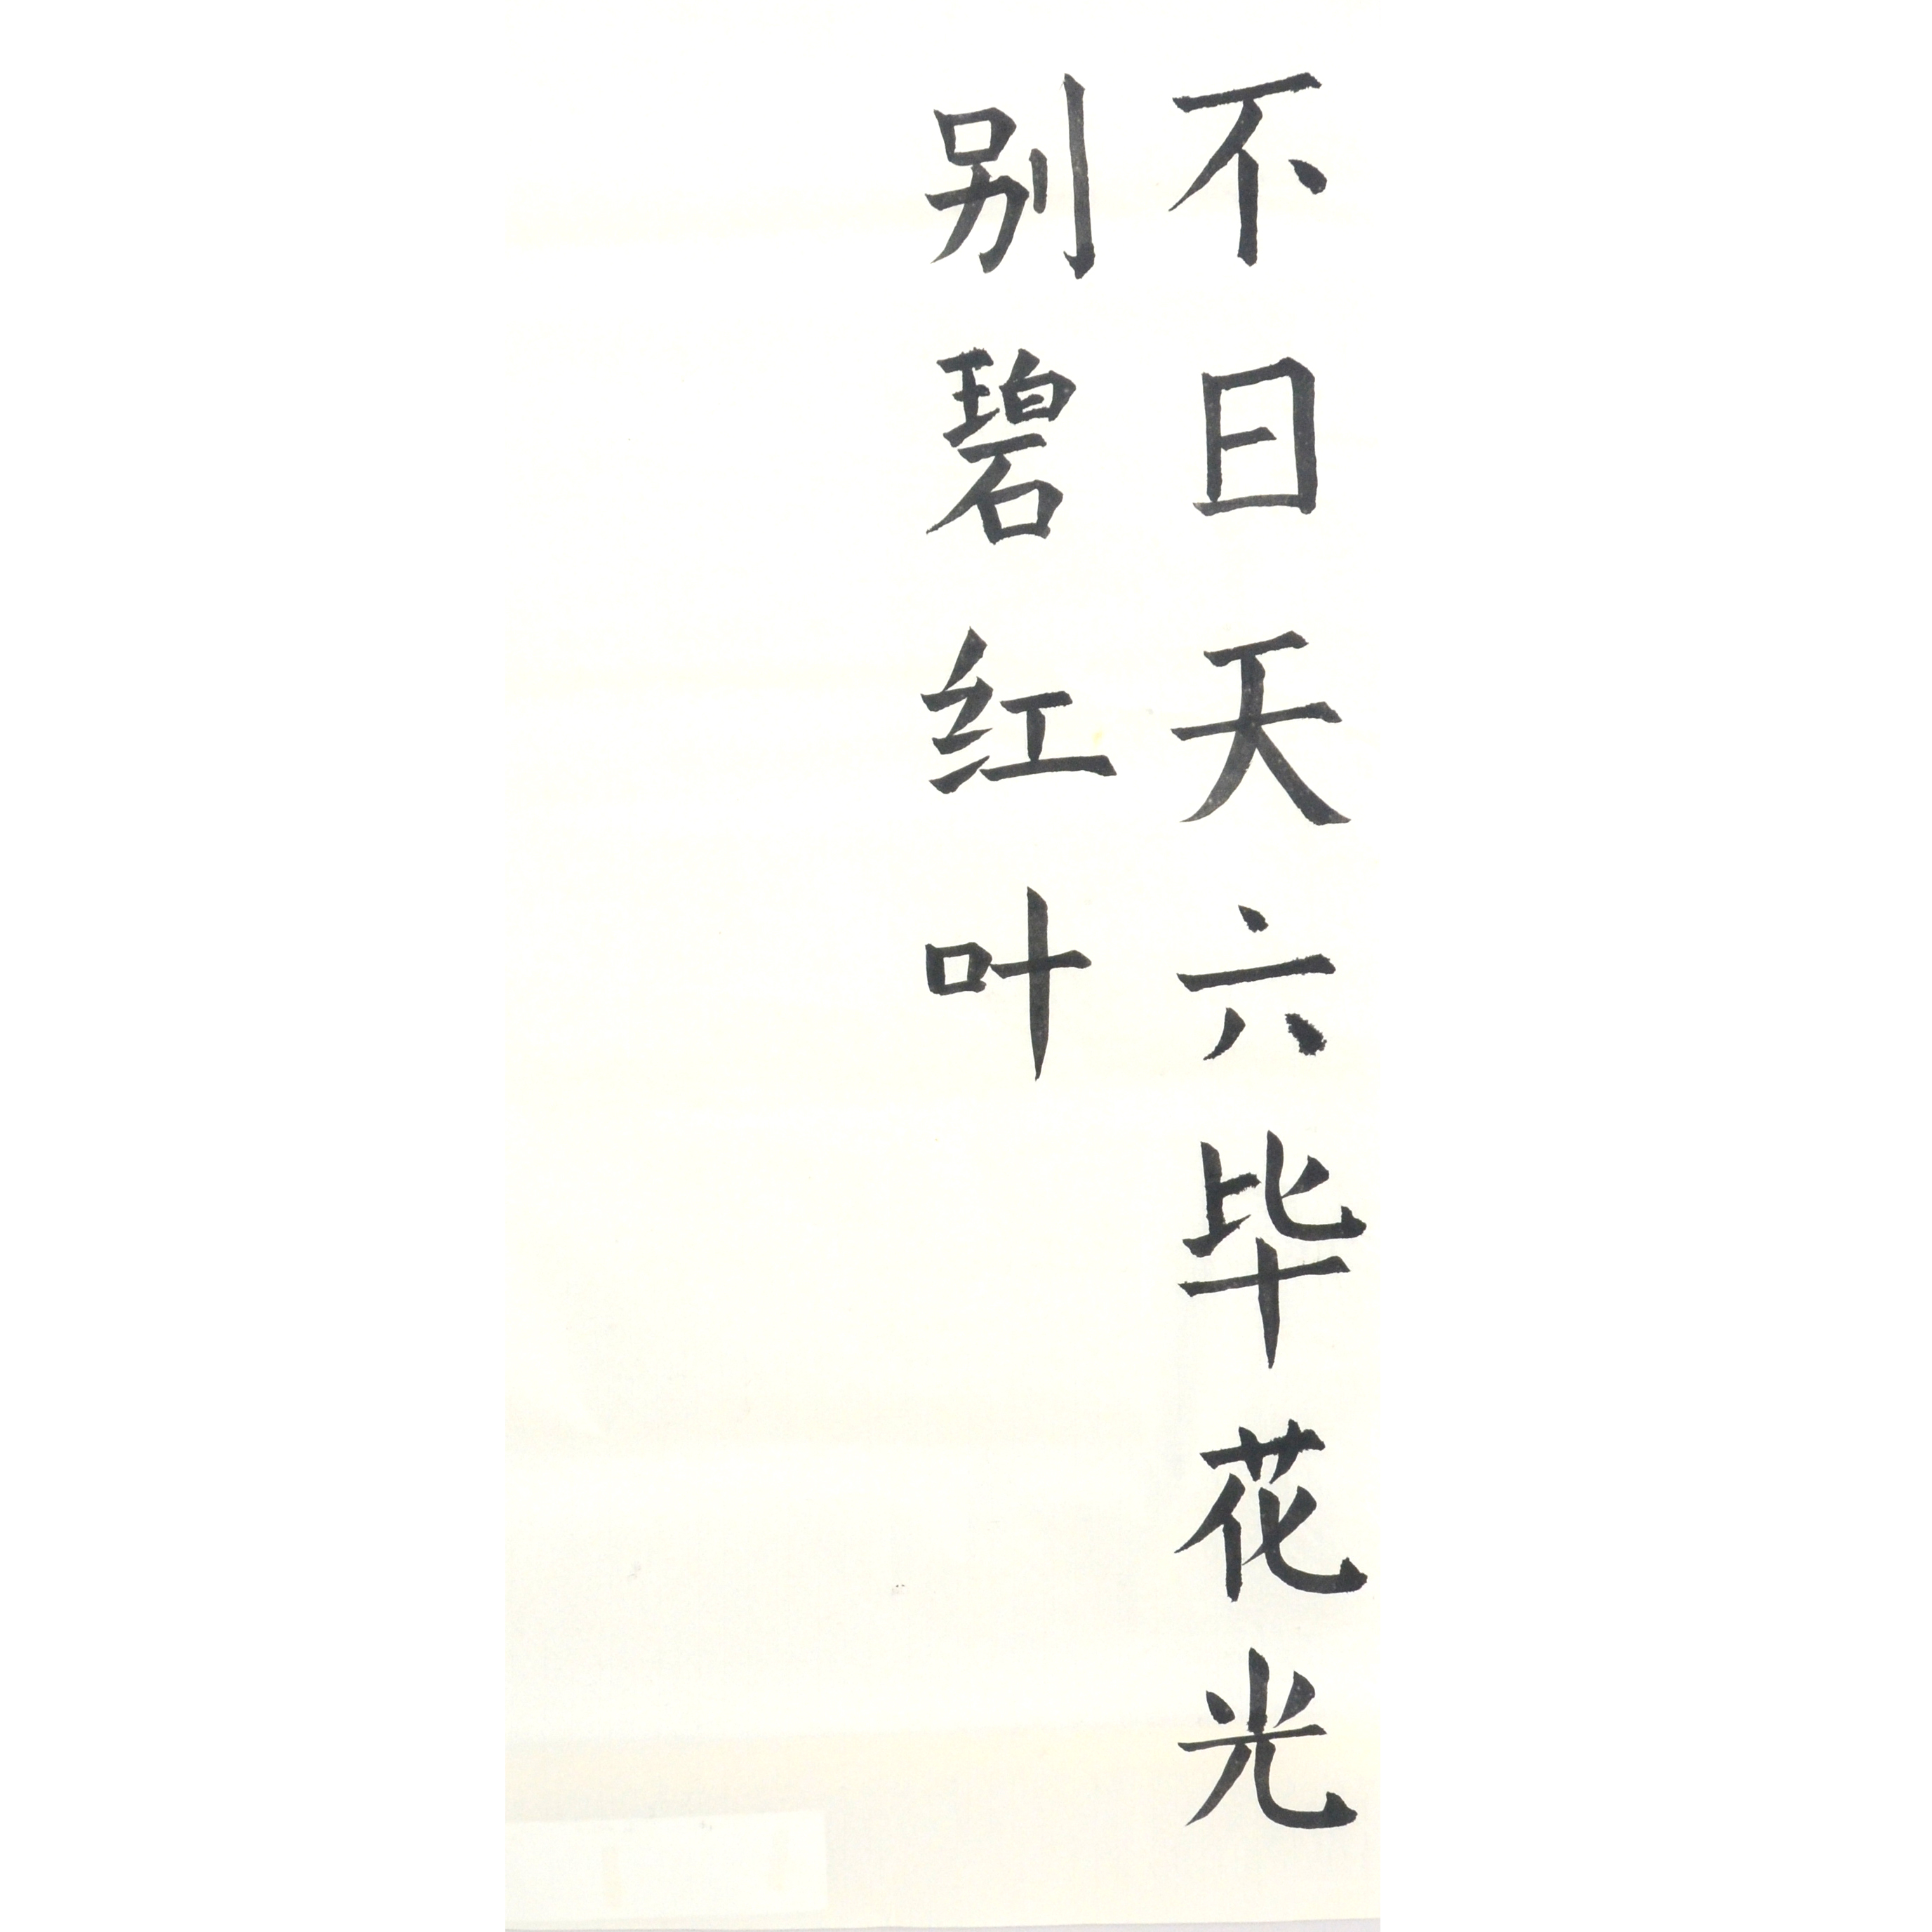 不日天六毕花光
别碧红叶